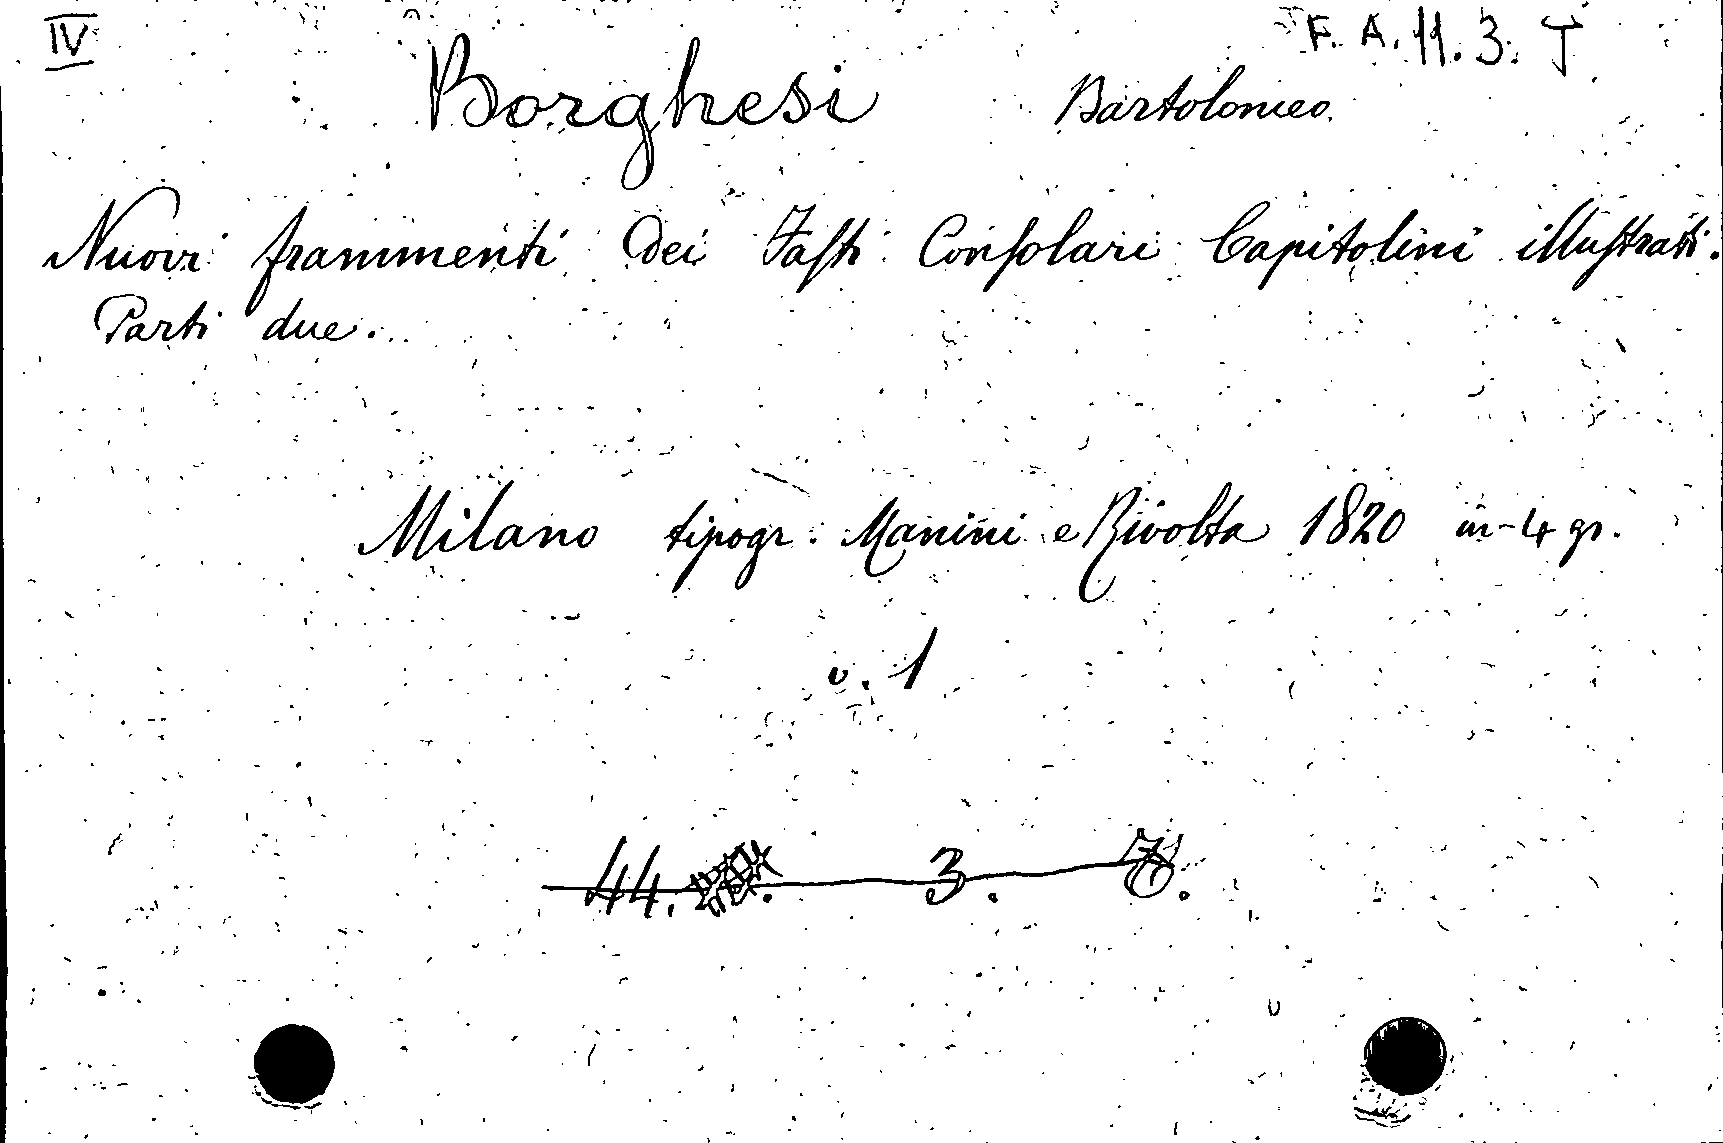 IV
F. A. 11. 3. J
Borghesi Bartolomeo.
Nuovi frammenti dei Fasti Consolari Capitolini illustrati.
Parti due.
Milano tipogr. Manini e Rivolta 1820 in-4 gr.
v. 1
44. 3. 7.